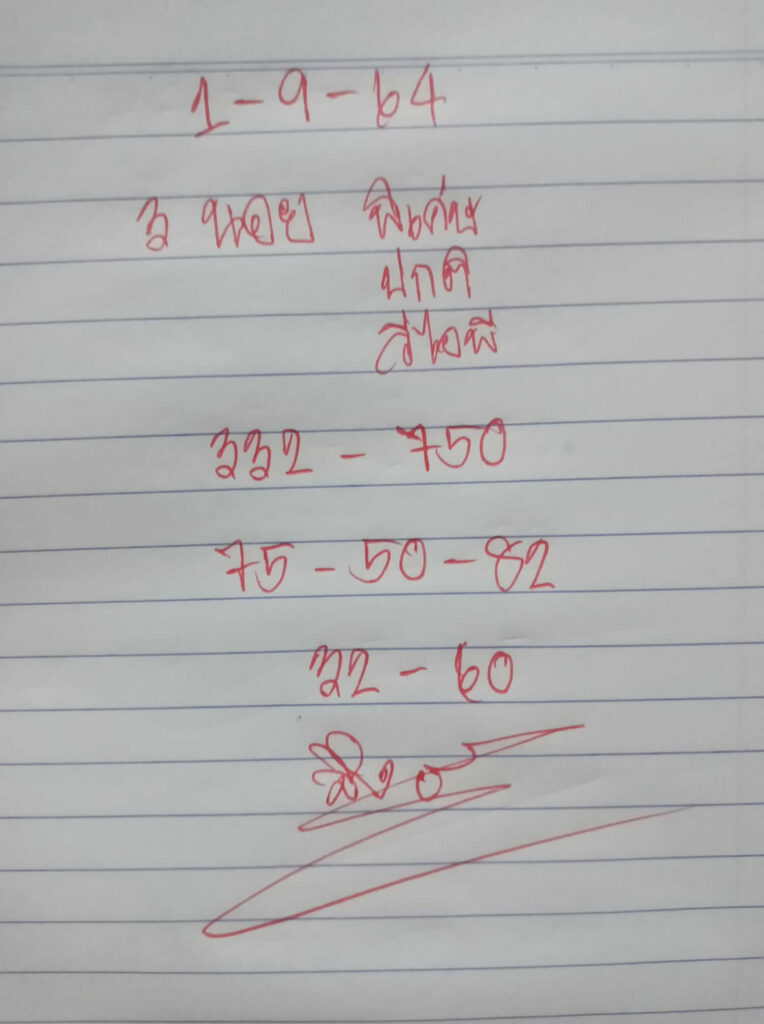 1-9-64
3 นอย พิเศษ
ปกติ
วีไอพี
332 - 750
75 - 50 - 82
32 - 60